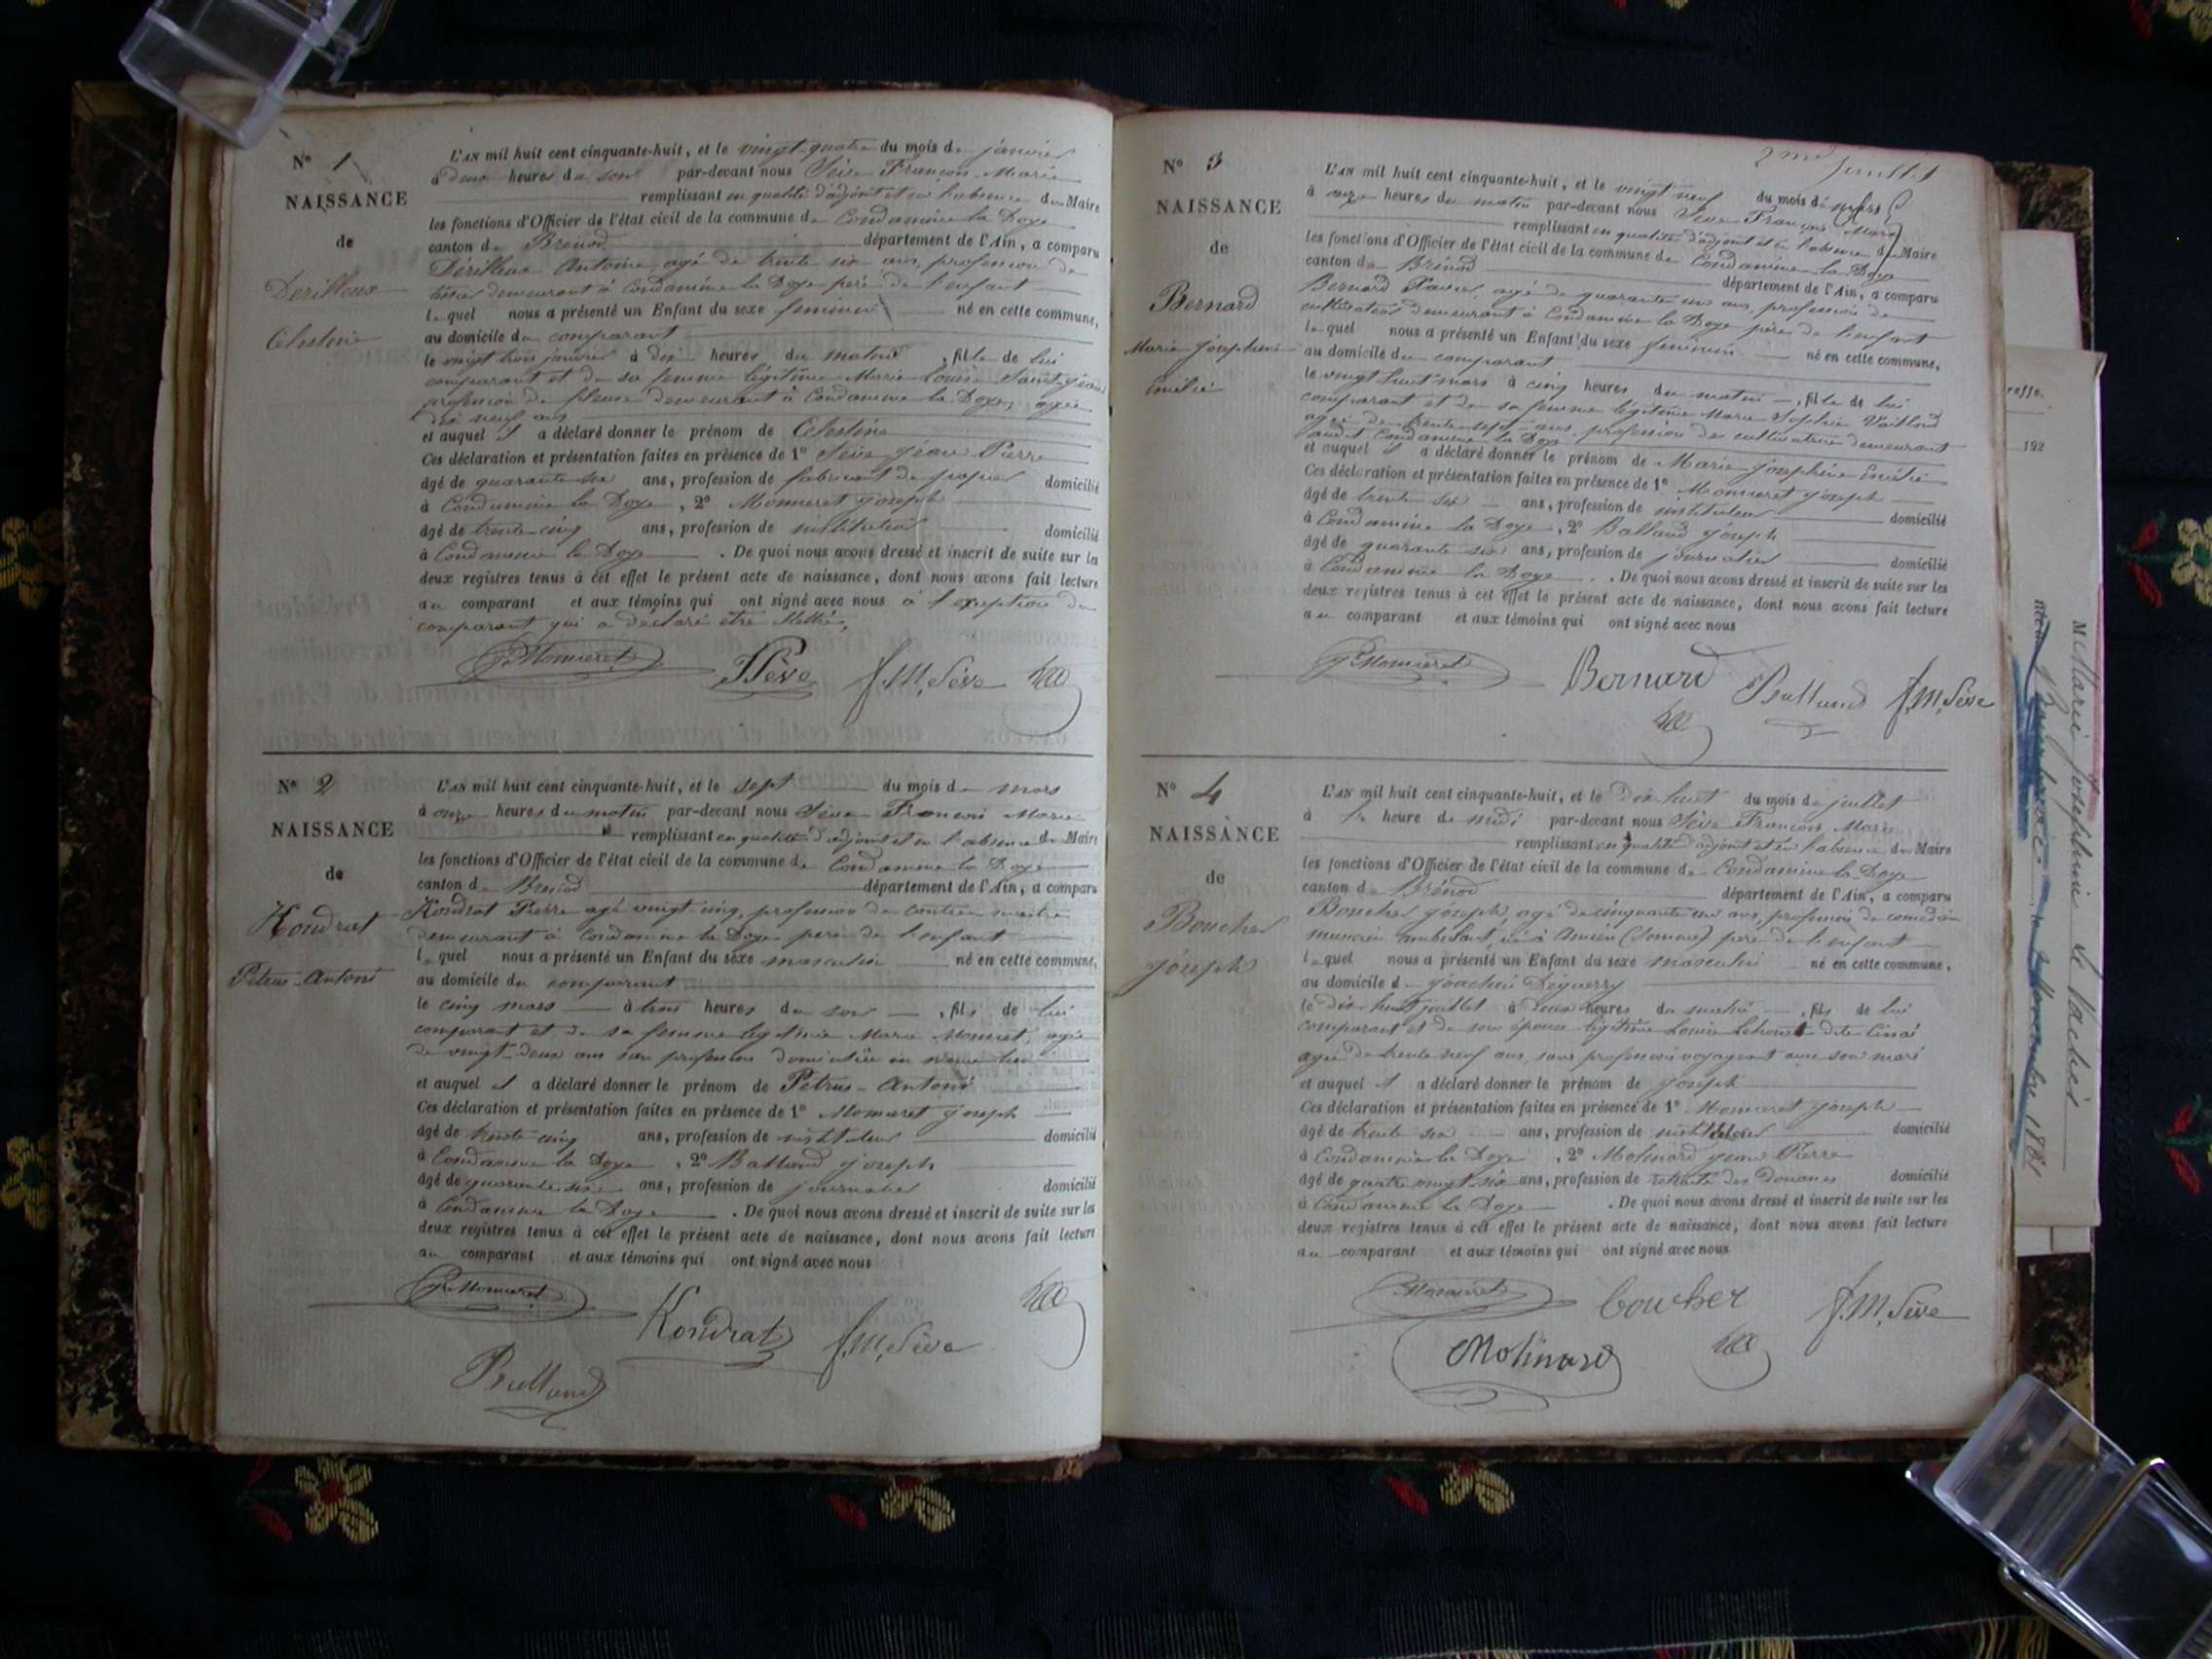 N° 1
NAISSANCE
de
Derilleux
Celestine
L'AN mil huit cent cinquante-huit, et le vingt quatre du mois de janvier
à deux heures du soir par-devant nous Sève François Marie
remplissant en qualité d'adjoint et en l'absence du Maire
les fonctions d'Officier de l'état civil de la commune de Condamine la Doye
canton de Brénod département de l'Ain, a comparu
Dérilleux Antoine, agé de trente six ans, profession de
demeurant à Condamine la Doye père de l'enfant
lequel nous a présenté un Enfant du sexe feminin né en cette commune,
au domicile du comparant
le vingt trois janvier à dix heures du matin, fille de lui
comparant et de sa femme légitime Marie Louise Saint-Jean
profession de demeurant à Condamine la Doye, agée
dix neuf ans
et auquel il a déclaré donner le prénom de Celestine
Ces déclaration et présentation faites en présence de 1° Sève Jean Pierre
âgé de quarante six ans, profession de fabricant de papier domicilié
à Condamine la Doye, 2° Monneret Joseph
âgé de trente-cinq ans, profession de instituteur domicilié
à Condamine la Doye. De quoi nous avons dressé et inscrit de suite sur les
deux registres tenus à cet effet le présent acte de naissance, dont nous avons fait lecture
au comparant et aux témoins qui ont signé avec nous à l'exception du
comparant qui a déclaré etre
Monneret Sève f. M. Sève
N° 2
NAISSANCE
de
Kondrat
Petrus-Antoni
L'AN mil huit cent cinquante-huit, et le sept du mois de mars
à onze heures du matin par-devant nous Sève François Marie
remplissant en qualité d'adjoint et en l'absence du Maire
les fonctions d'Officier de l'état civil de la commune de Condamine la Doye
canton de Brénod département de l'Ain, a comparu
Kondrat Pierre agé vingt-cinq, profession de contre maitre
demeurant à Condamine la Doye père de l'enfant
lequel nous a présenté un Enfant du sexe masculin né en cette commune,
au domicile du comparant
le cinq mars à trois heures du soir, fils de lui
comparant et de sa femme légitime Marie Monneret, agée
de vingt-deux ans sans profession domiciliée en même lieu
et auquel il a déclaré donner le prénom de Petrus-Antoni
Ces déclaration et présentation faites en présence de 1° Monneret Joseph
âgé de trente cinq ans, profession de instituteur domicilié
à Condamine la Doye, 2° Balland Joseph
âgé de quarante six ans, profession de journalier domicilié
à Condamine la Doye. De quoi nous avons dressé et inscrit de suite sur les
deux registres tenus à cet effet le présent acte de naissance, dont nous avons fait lecture
au comparant et aux témoins qui ont signé avec nous
Monneret Kondrat f. M. Sève
Balland
2me feuillet
N° 3
NAISSANCE
de
Bernard
Marie Joséphine
Emélie
L'AN mil huit cent cinquante-huit, et le vingt neuf du mois de mars
à onze heures du matin par-devant nous Sève François Marie
remplissant en qualité d'adjoint et en l'absence du Maire
les fonctions d'Officier de l'état civil de la commune de Condamine la Doye
canton de Brénod département de l'Ain, a comparu
Bernard Xavier, agé de quarante un ans, profession de
cultivateur demeurant à Condamine la Doye père de l'enfant
lequel nous a présenté un Enfant du sexe féminin né en cette commune,
au domicile du comparant
le vingt huit mars à cinq heures du matin, fille de lui
comparant et de sa femme légitime Marie Sophie Vailloud
agée de trente sept ans, profession de cultivatrice demeurant
audit Condamine la Doye
et auquel il a déclaré donner le prénom de Marie Joséphine Emélie
Ces déclaration et présentation faites en présence de 1° Monneret Joseph
âgé de trente six ans, profession de instituteur domicilié
à Condamine la Doye, 2° Balland Joseph
âgé de quarante six ans, profession de journalier domicilié
à Condamine la Doye. De quoi nous avons dressé et inscrit de suite sur les
deux registres tenus à cet effet le présent acte de naissance, dont nous avons fait lecture
au comparant et aux témoins qui ont signé avec nous
Monneret Bernard Balland f. M. Sève
N° 4
NAISSANCE
de
Boucher
Joseph
L'AN mil huit cent cinquante-huit, et le Dix huit du mois de juillet
à heure de midi par-devant nous Sève François Marie
remplissant en qualité d'adjoint et en l'absence du Maire
les fonctions d'Officier de l'état civil de la commune de Condamine la Doye
canton de Brénod département de l'Ain, a comparu
Boucher Joseph, agé de cinquante un ans, profession de comedien
musicien ambulant, né à Amien (Somme) père de l'enfant
lequel nous a présenté un Enfant du sexe masculin né en cette commune,
au domicile de Joachin Déguerry
le dix huit juillet à deux heures du matin, fils de lui
comparant et de son épouse légitime Louise dite
agée de trente neuf ans, sans profession voyageant avec son mari
et auquel il a déclaré donner le prénom de Joseph
Ces déclaration et présentation faites en présence de 1° Monneret Joseph
âgé de trente six ans, profession de instituteur domicilié
à Condamine la Doye, 2° Molinard Jean Pierre
âgé de quatre vingt six ans, profession de retraité des Douanes domicilié
à Condamine la Doye. De quoi nous avons dressé et inscrit de suite sur les
deux registres tenus à cet effet le présent acte de naissance, dont nous avons fait lecture
au comparant et aux témoins qui ont signé avec nous
Monneret boucher f. M. Sève
Molinard
resse.
192
M Marie Joséphine
1881